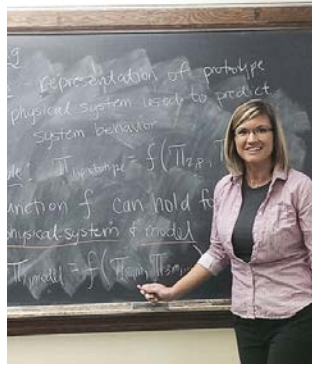 - representation of prototype
physical system used to predict
system behavior
Π prototype = f(Π
function f can hold fo
physical system & model
Π model = f(Π